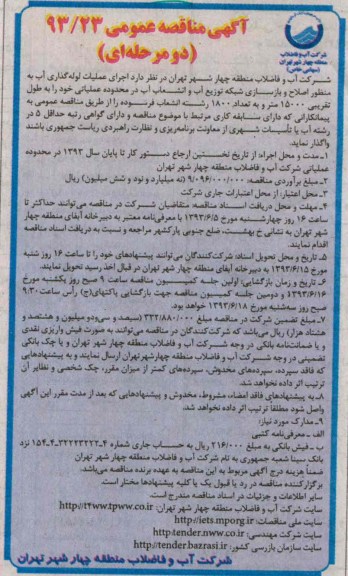 آگهی مناقصه عمومی ۹۳/۲۳
(دو مرحله‌ای)
شرکت آب و فاضلاب
منطقه چهار شهر تهران
(سهامی خاص)
شرکت آب و فاضلاب منطقه چهار شهر تهران در نظر دارد اجرای عملیات لوله‌گذاری آب به
منظور اصلاح و بازسازی شبکه توزیع آب و انشعاب آب در محدوده عملیاتی خود را به طول
تقریبی ۱۵۰۰۰ متر و به تعداد ۱۸۰۰ رشته انشعاب فرسوده را از طریق مناقصه عمومی به
پیمانکارانی که دارای سابقه کاری مرتبط با موضوع مناقصه و دارای گواهی رتبه حداقل ۵ در
رشته آب یا تأسیسات شهری از معاونت برنامه‌ریزی و نظارت راهبردی ریاست جمهوری باشند
واگذار نماید.
۱ـ مدت و محل اجراء: از تاریخ نخستین ارجاع دستور کار تا پایان سال ۱۳۹۳ در محدوده
عملیاتی شرکت آب و فاضلاب منطقه چهار شهر تهران
۲ـ مبلغ برآوردی مناقصه: ۹/۰۹۶/۰۰۰/۰۰۰ (نه میلیارد و نود و شش میلیون) ریال
۳ـ محل اعتبار: از محل اعتبارات جاری شرکت
۴ـ مهلت و محل دریافت اسناد مناقصه: متقاضیان شرکت در مناقصه می‌توانند حداکثر تا
ساعت ۱۶ روز چهارشنبه مورخ ۱۳۹۳/۶/۵ با معرفی‌نامه معتبر به دبیرخانه آبفای منطقه چهار
شهر تهران به نشانی خ بهشت، ضلع جنوبی پارکشهر مراجعه و نسبت به دریافت اسناد مناقصه
اقدام نمایند.
۵ـ تاریخ و محل تحویل اسناد: شرکت‌کنندگان می‌توانند پیشنهادهای خود را تا ساعت ۱۶ روز شنبه
مورخ ۱۳۹۳/۶/۱۵ به دبیرخانه آبفای منطقه چهار شهر تهران در قبال اخذ رسید تحویل نمایند.
۶ـ تاریخ و زمان بازگشایی: اولین جلسه کمیسیون مناقصه ساعت ۹ صبح روز یکشنبه مورخ
۱۳۹۳/۶/۱۶ و دومین جلسه کمیسیون مناقصه جهت بازگشایی پاکتهای(ج) رأس ساعت ۹:۳۰
صبح روز سه‌شنبه مورخ ۱۳۹۳/۶/۱۸ خواهد بود.
۷ـ مبلغ تضمین شرکت در مناقصه مبلغ ۳۳۲/۸۸۰/۰۰۰ (سیصد و سی‌ودو میلیون و هشتصد و
هشتاد هزار) ریال می‌باشد که شرکت‌کنندگان در مناقصه می‌توانند به صورت فیش واریزی نقدی
و یا ضمانتنامه بانکی در وجه شرکت آب و فاضلاب منطقه چهار شهر تهران و یا چک بانکی
تضمینی در وجه شرکت آب و فاضلاب منطقه چهار شهر تهران ارسال نمایند و به پیشنهادهایی
که فاقد سپرده، سپرده‌های مخدوش، سپرده‌های کمتر از میزان مقرر، چک شخصی و نظایر آن
ترتیب اثر داده نخواهد شد.
۸ـ به پیشنهادهای فاقد امضاء، مشروط، مخدوش و پیشنهادهایی که بعد از مدت مقرر این آگهی
واصل شود مطلقا ترتیب اثر داده نخواهد شد.
۹ـ مدارک مورد نیاز:
الف ـ معرفی‌نامه کتبی
ب ـ فیش بانکی به مبلغ ۲۱۶/۰۰۰ ریال به حساب جاری شماره ۴ـ۳۲۲۲۳۲۲۲ـ۴ـ۱۵۴ نزد
بانک سینا شعبه جمهوری به نام شرکت آب و فاضلاب منطقه چهار شهر تهران
ضمنا هزینه درج آگهی مربوط به این مناقصه به عهده برنده مناقصه می‌باشد.
برگزارکننده مناقصه در رد یا قبول یک یا کلیه پیشنهادها مختار است.
سایر اطلاعات و جزئیات در اسناد مناقصه مندرج است.
سایت شرکت آب و فاضلاب منطقه چهار شهر تهران: http://t4ww.tpww.co.ir
سایت ملی مناقصات: http://iets.mporg.ir
سایت شرکت مهندسی: http://tender.nww.co.ir
سایت سازمان بازرسی کشور: http://tender.bazrasi.ir
شرکت آب و فاضلاب منطقه چهار شهر تهران